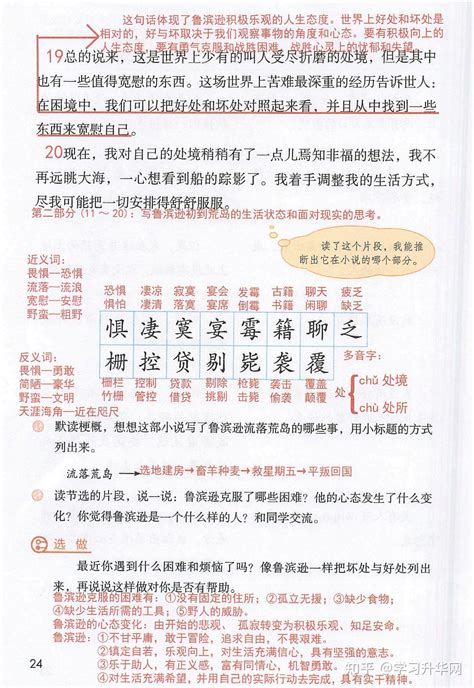 这句话体现了鲁滨逊积极乐观的人生态度。世界上好处和坏处是
相对的，好与坏取决于我们观察事物的角度和心态。要有积极向上的
人生态度，要有勇气克服和战胜困难，战胜心灵上的忧郁和失望。
19总的说来，这是世界上少有的叫人受尽折磨的处境，但是其中
也有一些值得宽慰的东西。这场世界上苦难最深重的经历告诉世人：
在困境中，我们可以把好处和坏处对照起来看，并且从中找到一些
东西来宽慰自己。
20现在，我对自己的处境稍稍有了一点儿焉知非福的想法，我不
再远眺大海，一心想看到船的踪影了。我着手调整我的生活方式，
尽我可能把一切安排得舒舒服服。
第二部分（11～20）：写鲁滨逊初到荒岛的生活状态和面对现实的思考。
读了这个片段，我能推
断出它在小说的哪个部分。
近义词：
畏惧—恐惧
流落—流浪
宽慰—安慰
野蛮—粗野
恐惧 凄凉 寂寞 宴会 发霉 古籍 聊天 疲乏
惧怕 凄清 落寞 宴席 倒霉 书籍 闲聊 缺乏
惧凄寞宴霉籍聊乏
栅控贷剔毙袭覆
栅栏 控制 贷款 剔除 枪毙 袭击 覆盖
竹栅 管控 借贷 挑剔 击毙 偷袭 颠覆
多音字：
处
chǔ 处境
chù 处所
反义词：
畏惧—勇敢
简陋—豪华
野蛮—文明
天涯海角—近在咫尺
默读梗概，想想这部小说写了鲁滨逊流落荒岛的哪些事，用小标题的方式
列出来。
流落荒岛→选地建房→畜羊种麦→救星期五→平叛回国
读节选的片段，说一说：鲁滨逊克服了哪些困难？他的心态发生了什么变
化？你觉得鲁滨逊是一个什么样的人？和同学交流。
选做
最近你遇到什么困难和烦恼了吗？像鲁滨逊一样把坏处与好处列出
来，再说说这样做对你是否有帮助。
鲁滨逊克服的困难有：①没有固定的居住所；②孤立无援；③缺少食物；
④缺少生活所需的工具；⑤野人的威胁。
鲁滨逊的心态变化：由开始的悲观、孤寂转变为积极乐观、知足安命。
鲁滨逊：①不甘平庸，敢于冒险，追求自由，不畏艰难。
②镇定自若，乐观向上，对生活充满信心，对未来充满希望。
③乐于助人，有正义感，富有同情心，机智勇敢。
④对生活充满希望，并用自己的实际行动去完成，具有实干精神。
24
知乎 @学习升华网